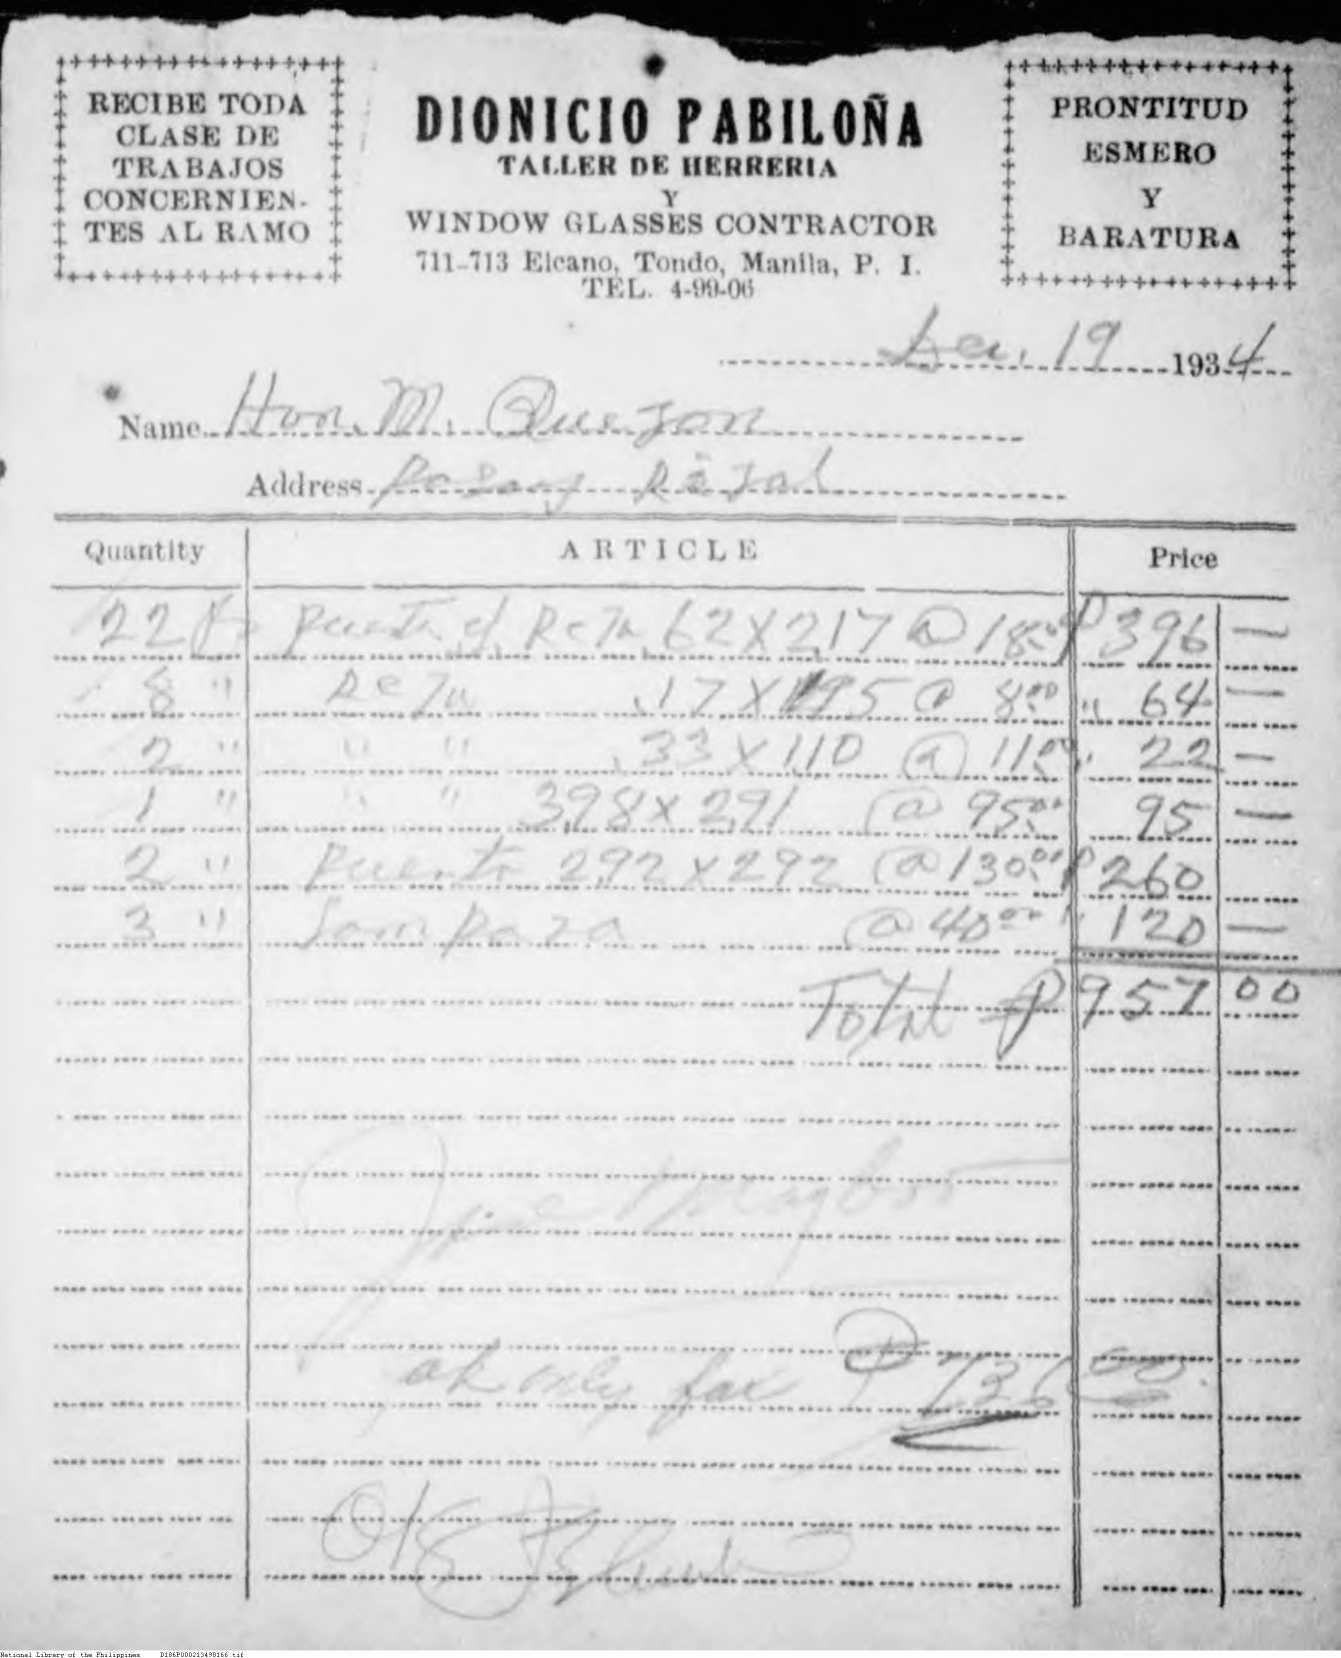 RECIBE TODA
CLASE DE
TRABAJOS
CONCERNIEN-
TES AL RAMO
DIONICIO PABILOÑA
TALLER DE HERRERIA
Y
WINDOW GLASSES CONTRACTOR
711-713 Elcano, Tondo, Manila, P. I.
TEL. 4-99-06
PRONTITUD
ESMERO
Y
BARATURA
Dec. 19 1934
Name Hon. M. Quezon
Address Pasay Rizal
Quantity ARTICLE Price
22 Puerta d. Reja .62 X 2.17 @ 18.00 P 396 —
8 " Reja .17 X 1.95 @ 8.00 " 64 —
2 " " " .33 X 1.10 @ 11.00 " 22 —
1 " " " 3.98 X 2.91 @ 95.00 95 —
2 " Puerta 2.92 X 2.92 @ 130.00 P 260
3 " @ 40.00 " 120 —
Total P 957 00
ok only for P 736.00
OK
National Library of the Philippines D186P000213498166.tif